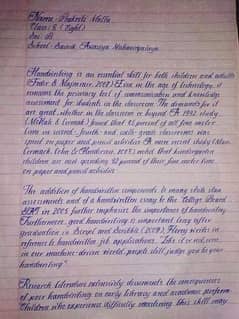 Name: Prakriti Malla
Class: 8 (Eight)
Sec: A
School: Saurak Awasiya Mahavidyalaya
Handwriting is an essential skill for both children and adults
(Feder & Majnemer, 2007). Even in the age of technology, it
remains the primary tool of communication and knowledge
assessment for students in the classroom. The demands for it
are great, whether in the classroom or beyond. A 1992 study
(McHale & Cermak) found that 85 percent of all fine motor
time in second-, fourth- and sixth-grade classrooms was
spent on paper and pencil activities. A more recent study (Marr,
Cermak, Cohn & Henderson, 2003) noted that kindergarten
children are now spending 42 percent of their fine motor time
on paper and pencil activities.
The addition of handwritten components to many state
assessments and of a handwritten essay to the College Board
SAT in 2005 further emphasize the importance of handwriting.
Furthermore, good handwriting is important long after
graduation. In Script and Scribble (2009), Florey writes in
reference to handwritten job applications, "Like it or not, even
in our machine-driven world, people still judge you by your
handwriting."
Research literature extensively documents the consequences
of poor handwriting on early literacy and academic perform
Children who experience difficulty mastering this skill may